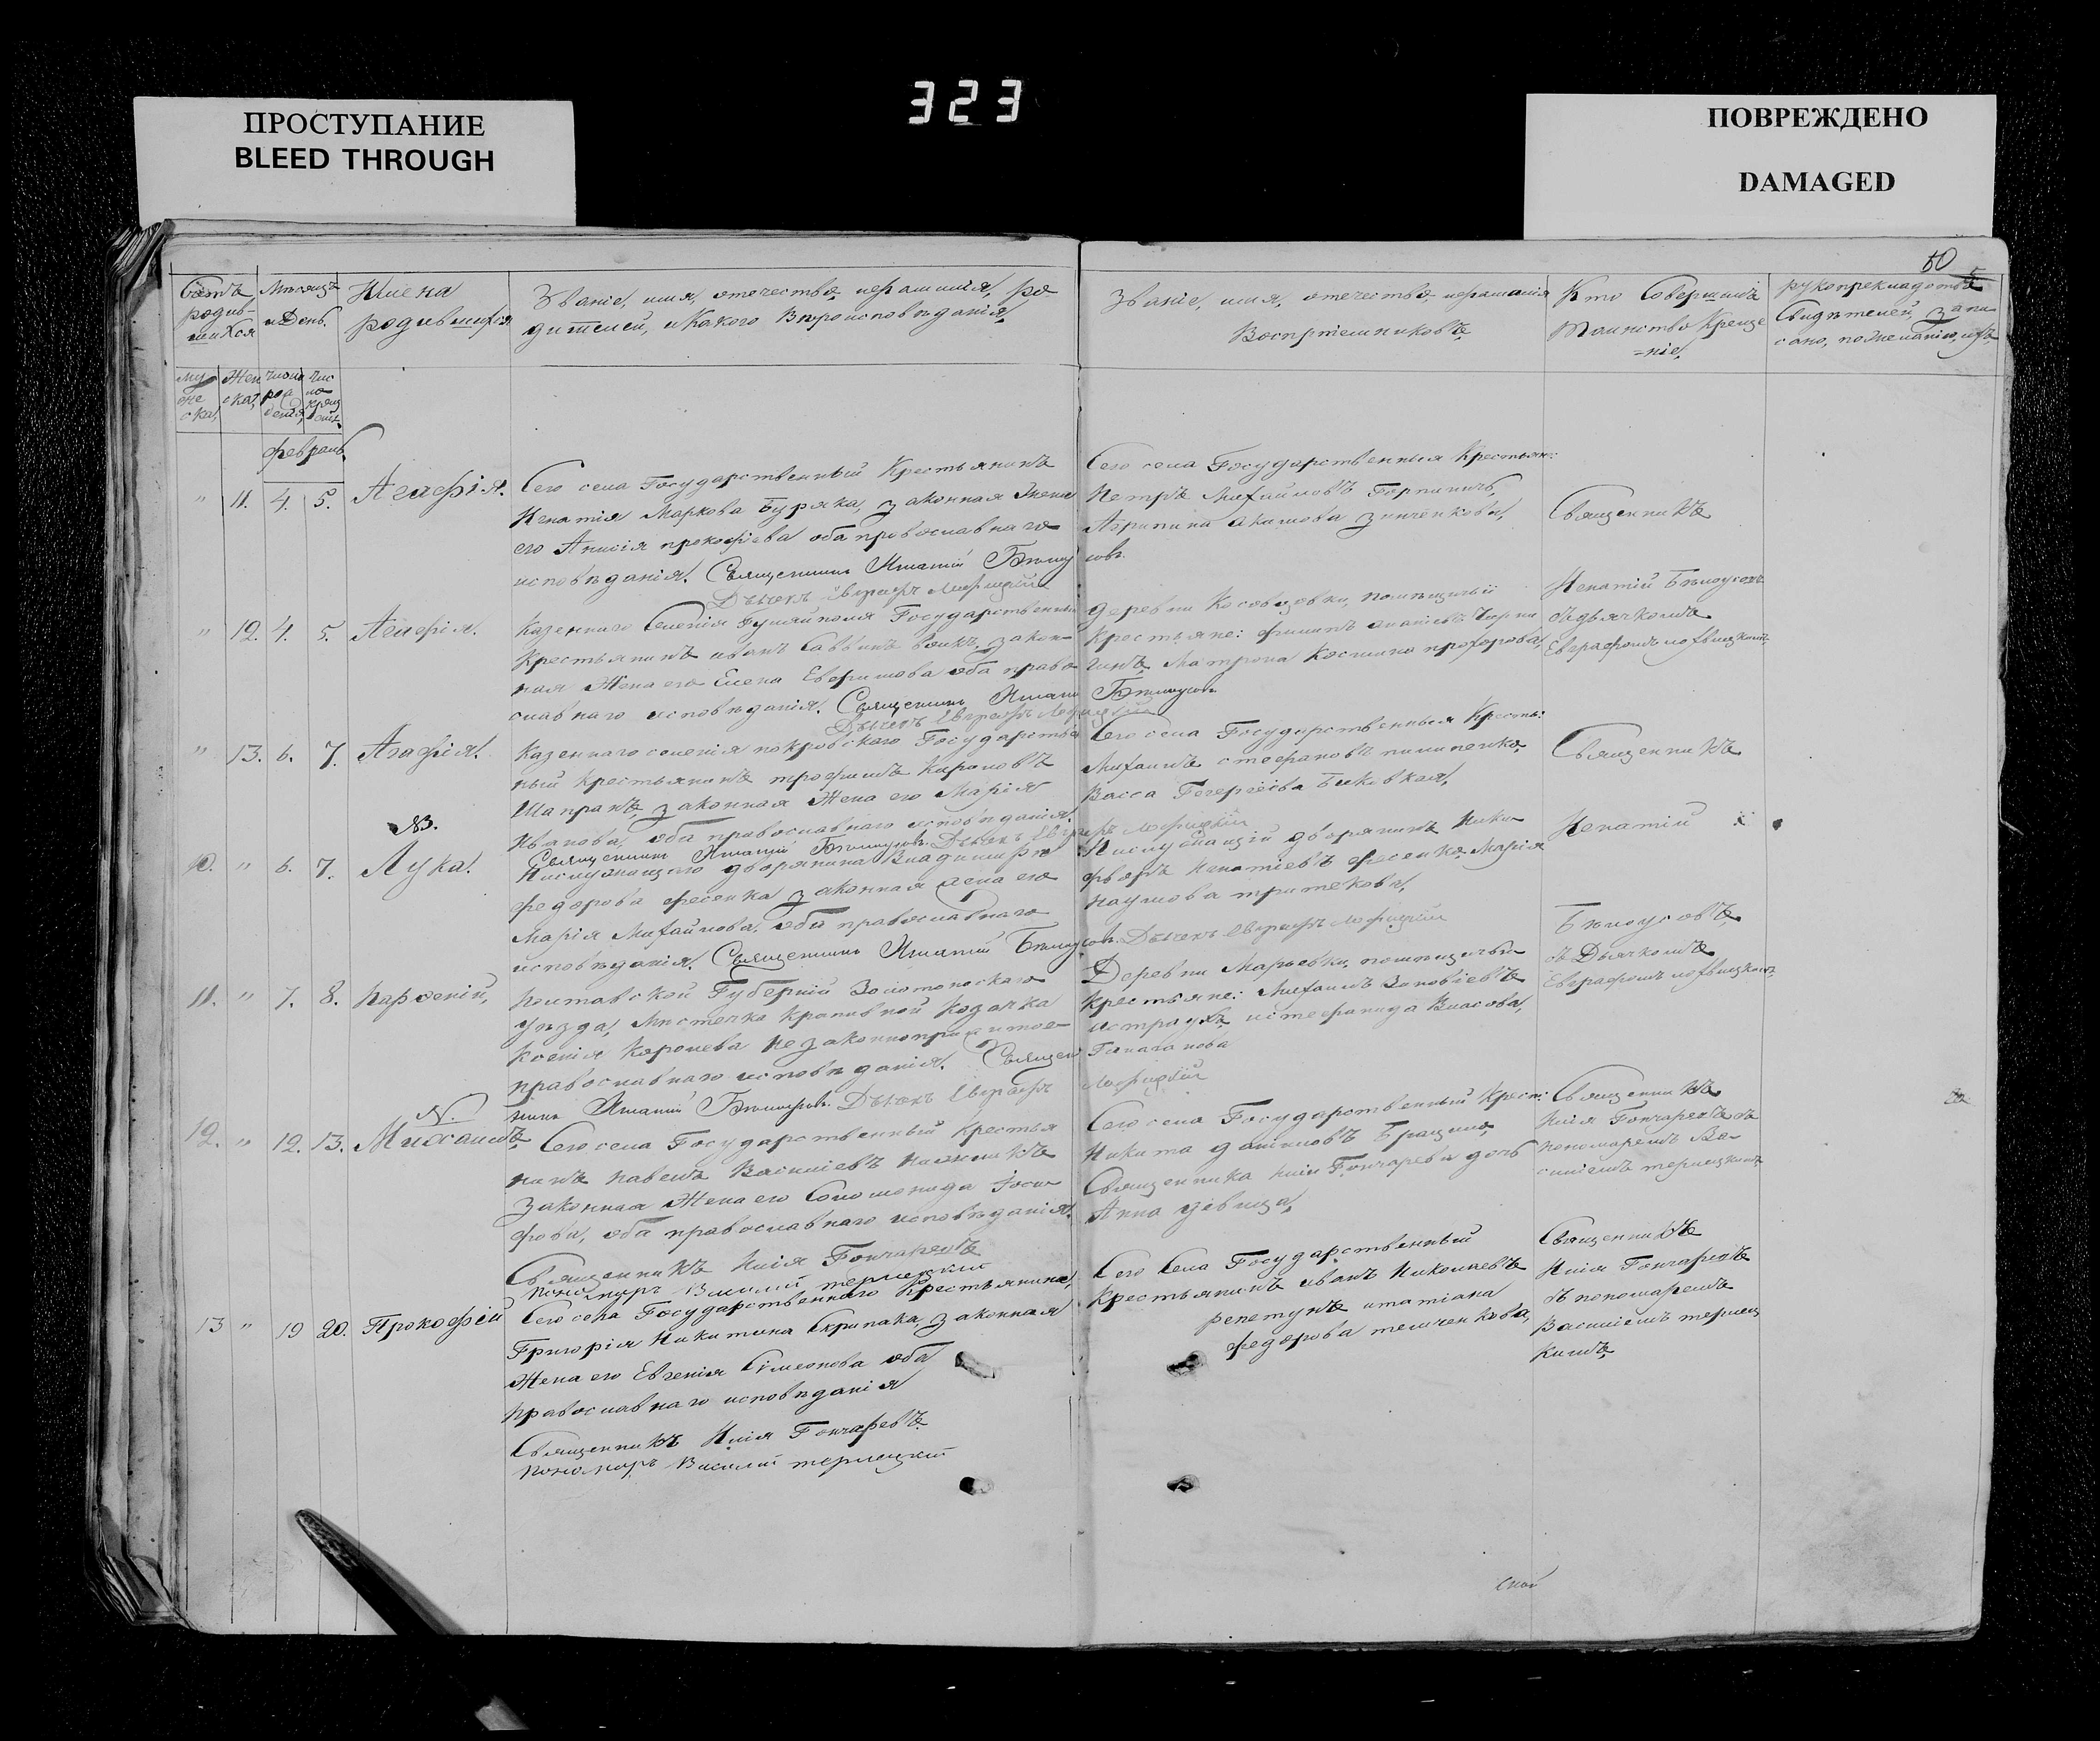 323
ПРОСТУПАНИЕ
BLEED THROUGH
ПОВРЕЖДЕНО
DAMAGED
50
Счетъ родив-шихся
Мѣсяцъ и День.
Имена родившихся
Званіе, имя, отечество, и фамилія, ро
дителей, и какого Вѣроисповѣданія,
Званіе, имя, отечество и фамилія
Воспріемниковъ,
Кто Совершилъ
Таинство Креще
=ніе,
рукоприкладство
Свидѣтелей, запи
сано, по желанію, ихъ
муже ска,
Жен ска,
число рож денія,
Чис ло крещ енія.
февраль.
" 11. 4. 5. Агафія.
Сего села Государственный Крестьянинъ
Игнатія Маркова Буряка, законная Жена
его Анисія прокофіева оба православнаго
исповѣданія. Священникъ Игнатій Бѣлоусовъ.
Дьячекъ Евграфъ
Сего села Государственныя Крестьян:
Петръ Михайловъ Горпиничъ,
Агрипина Акимова Зинченкова,
Священникъ
" 12. 4. 5. Агафія.
Казеннаго Селенія Гуляйполя Государственный
Крестьянинъ иванъ Саввинъ Вовкъ, закон-
ная Жена его Елена Евфимова оба право
славнаго исповѣданія. Священникъ Игнатій Бѣлоусовъ
Дьячекъ Евграфъ
деревни Косовцовки, помѣщичьи
Крестьяне: филипъ
Матрона Космина прохорова,
Игнатій Бѣлоусовъ
съ дьячкомъ
Евграфомъ
" 13. 6. 7. Агафія.
Казеннаго селенія покровскаго Государствен
ный Крестьянинъ трофимъ Карповъ
Шапранъ, законная Жена его Марія
Иванова, оба православнаго исповѣданія.
Священникъ Игнатій Бѣлоусовъ. Дьячекъ Евграфъ
Сего села Государственныя Кресть:
Михаилъ стефановъ пилипенко,
Васса Георгіева Биковская,
Священникъ
NB.
10. " 6. 7. Лука.
Неслужащаго дворянина Владимира
федорова фесенка законная жена его
Марія Михайлова, оба православнаго
исповѣданія. Священникъ Игнатій Бѣлоусовъ. Дьячекъ Евграфъ
Неслужащій дворянинъ
Игнатіевъ фесенко, Марія
наумова
Игнатій
Бѣлоусовъ,
11. " 7. 8. Парфеній,
Полтавской Губерніи Золотоноскаго
уѣзда, Мѣстечка Крапивной Козачка
Ксенія Королева Незаконноприжитое
православнаго исповѣданія. Священ
никъ Игнатій Бѣлоусовъ. Дьячекъ Евграфъ
Деревни Марьевки, помѣщичьи
Крестьяне: Михаилъ Зиновіевъ
и стефанида Власова,
съ Дьячкомъ
Евграфомъ
N.
12. " 12. 13. Михаилъ,
Сего села Государственный Крестья
нинъ павелъ Василіевъ
законная Жена его Соломонида Іоси
фова, оба православнаго исповѣданія.
Священникъ Илія Гончаревъ
пономарь Василій терлецкій
Сего села Государственный Крест:
Никита даниловъ
Священника Иліи Гончарева дочь
Анна дѣвица,
Священникъ
Илія Гончаревъ съ
пономаремъ Ва-
силіемъ терлецкимъ
13 " 19 20. Прокофій
Сего села Государственнаго Крестьянина,
Григорія Никитина Скрипака, законная
Жена его Евгенія Симеонова оба
православнаго исповѣданія
Священникъ Илія Гончаревъ
пономарь Василій терлецкій
Сего Села Государственный
Крестьянинъ иванъ Николаевъ
репетунъ и татіана
федорова
Священникъ
Илія Гончаревъ
съ пономаремъ
Василіемъ терлец
кимъ,